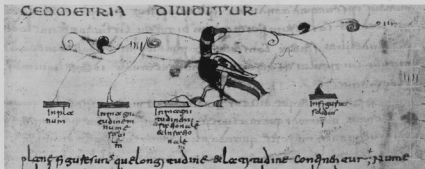 GEOMETRIA DIUIDITUR
Inpla
num
Inmagni
tudinem
nume
rabi
le
m
Inmagni
tudinem
&inratio
nale
m
Infiguras
solidas
figurę sunt quę longitudine & latitudine continentur; Nume